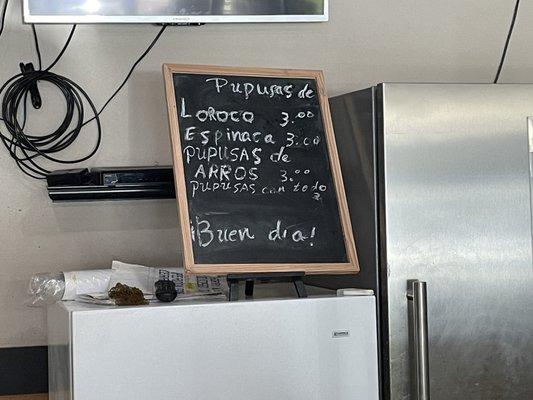 Pupusas de
Loroco 3.00
Espinaca 3.00
PUPUSAS de
ARROS 3.00
PUPUSAS con todo
3
¡Buen dia!